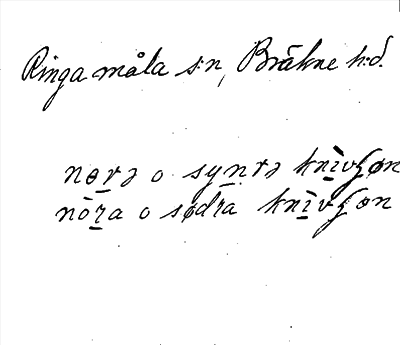 Ringamåla s:n, Bräkne h:d.
nɵrə o synrə knìvʃøn
nòra o sødra knìvʃøn